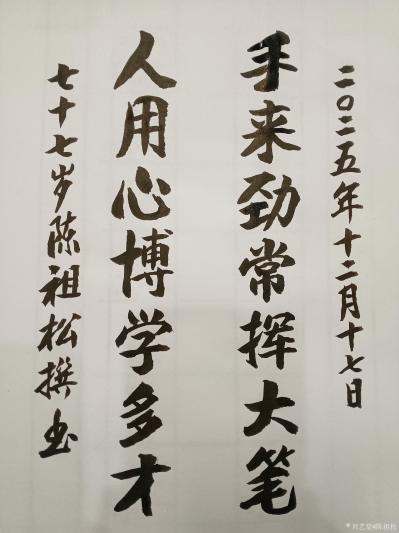 二〇二五年十二月十七日
手来劲常挥大笔
人用心博学多才
七十七岁陈祖松撰书